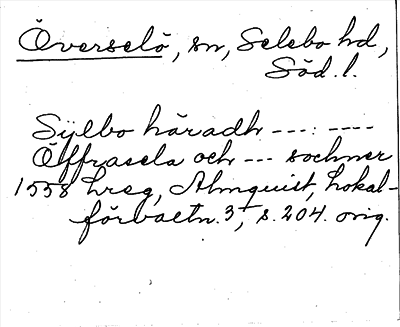 Överselö, sn, Selebo hd,
Söd. l.
Sÿlbo häradh ---: ----
Öffrasela och --- sochner
1558 hreg, Almquist, Lokal-
förvaltn. 3, s. 204. orig.